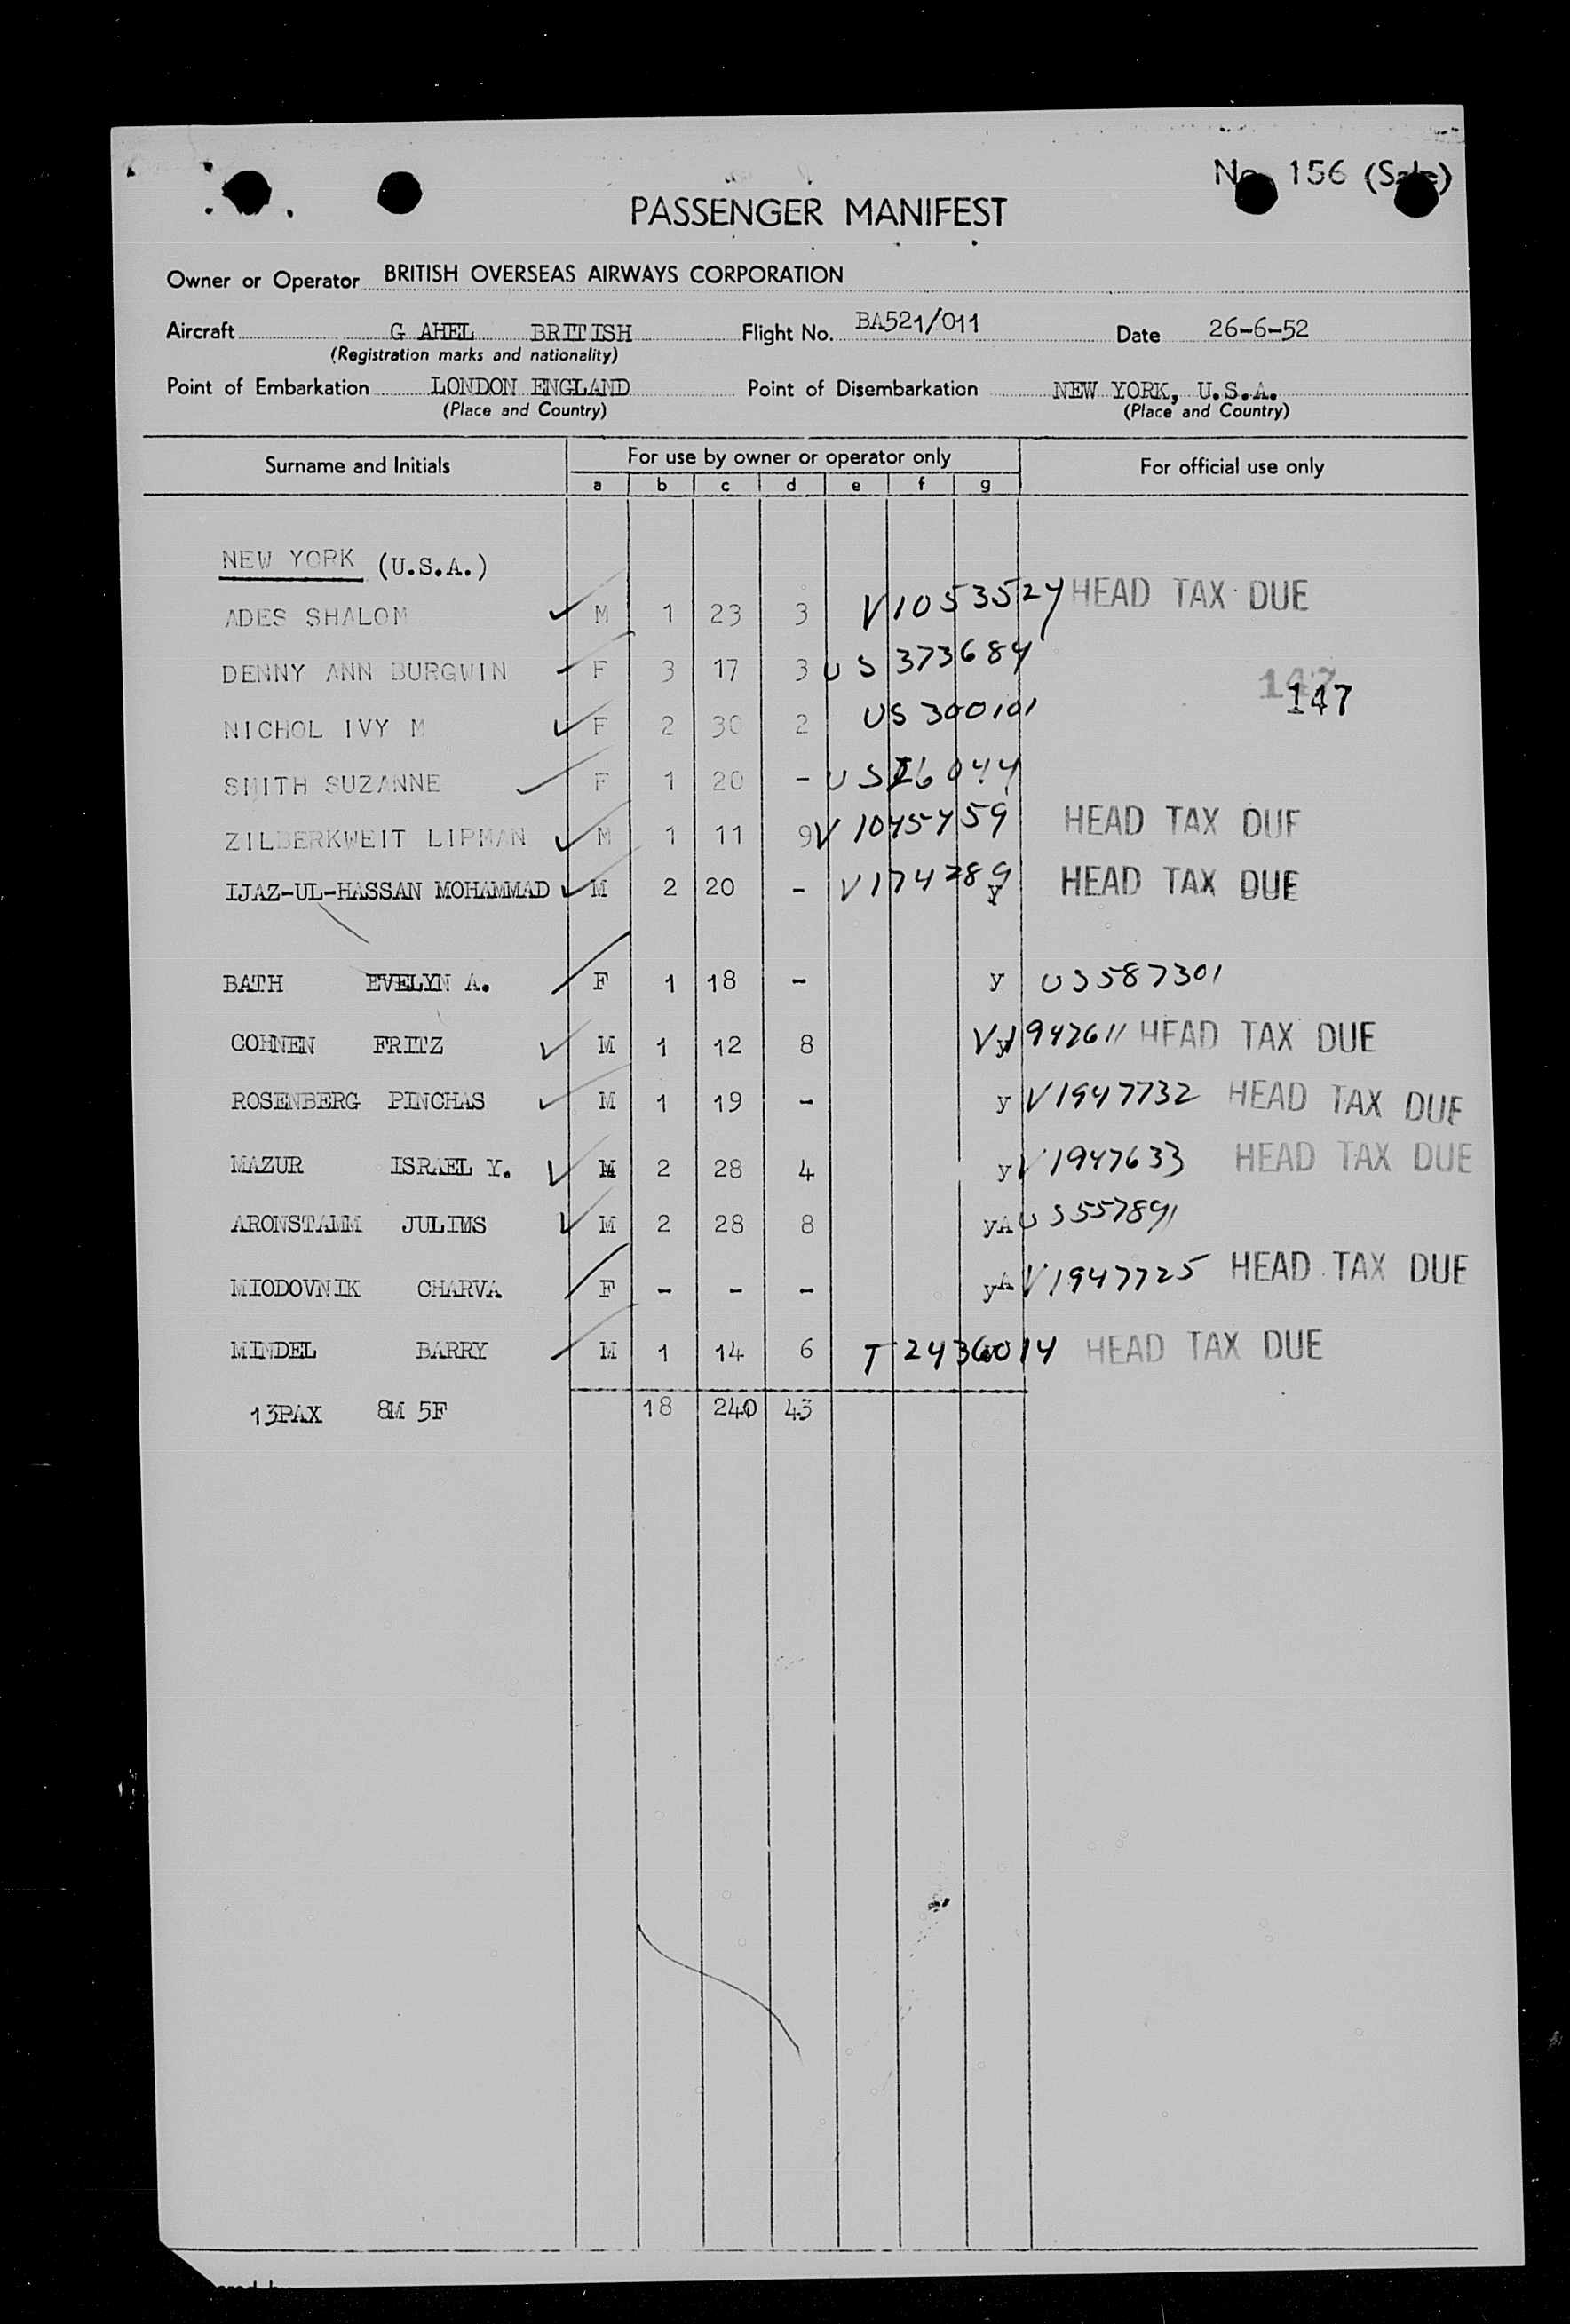 No. 156 (Sale)
PASSENGER MANIFEST
Owner or Operator BRITISH OVERSEAS AIRWAYS CORPORATION
Aircraft G AHEL BRITISH Flight No. BA521/011 Date 26-6-52
(Registration marks and nationality)
Point of Embarkation LONDON ENGLAND Point of Disembarkation NEW YORK, U.S.A.
(Place and Country) (Place and Country)
Surname and Initials For use by owner or operator only For official use only
a b c d e f g
NEW YORK (U.S.A.)
ADES SHALOM M 1 23 3 V1053524 HEAD TAX DUE
DENNY ANN BURGWIN F 3 17 3 US 373684
147 147
NICHOL IVY M F 2 30 2 US 300101
SMITH SUZANNE F 1 20 -
ZILBERKWEIT LIPMAN M 1 11 9 V 1045459 HEAD TAX DUE
IJAZ-UL-HASSAN MOHAMMAD M 2 20 - V174289 y HEAD TAX DUE
BATH EVELYN A. F 1 18 - y US587301
COHNEN FRITZ M 1 12 8 y V1947611 HEAD TAX DUE
ROSENBERG PINCHAS M 1 19 - y V1947732 HEAD TAX DUE
MAZUR ISRAEL Y. M 2 28 4 y V1947633 HEAD TAX DUE
ARONSTAMM JULIMS M 2 28 8 yA US557891
MIODOVNIK CHARVA F - - - yA V1947725 HEAD TAX DUE
MINDEL BARRY M 1 14 6 T2436014 HEAD TAX DUE
13PAX 8M 5F 18 240 43